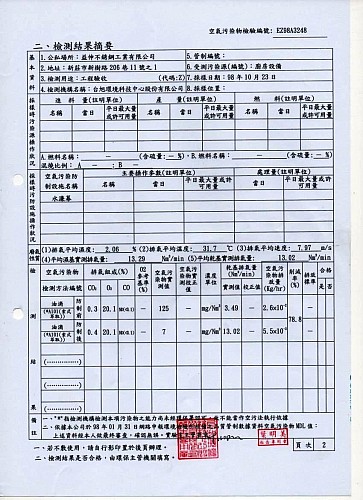 空氣污染物檢驗編號: EZ98A3248
二、檢測結果摘要
基本資料
1.公私場所: 益伸不銹鋼工業有限公司
5.管制編號:
2.地址: 新莊市新樹路206巷11號之1
6.受測污染源(編號): 廚房設備
3.檢測用途: 工程驗收 (代碼:Z)
7.採樣日期: 98年10月23日
4.檢測機構名稱: 台旭環境科技中心股份有限公司
8.採樣位置:
採樣時污染源操作狀況
進料量(註明單位) 產量(註明單位) 燃料(註明單位)
名稱 當日 平日最大量或許可用量 名稱 當日 平日最大量或許可用量 名稱 當日 平日最大量或許可用量
A.燃料名稱: — (含硫量: — %), B.燃料名稱: — (含硫量: — %)
混燒比例: A — ; B —
採樣時污防設施操作狀況
空氣污染防制設施名稱 主要操作參數(註明單位) 處理量(註明單位)
名稱 當日 平日最大量或許可用量 當日 平日最大量或許可用量
水濂幕
(1)排氣平均濕度: 2.06 % (2)排氣平均溫度: 31.7 ℃ (3)排氣平均速度: 7.97 m/s
(4)平均濕基實測排氣量: 13.29 Nm³/min (5)平均乾基實測排氣量: 13.02 Nm³/min
檢測結果
空氣污染物 排氣組成(%) O2參考基準(%) 空氣污染物實測值 空氣污染物實測校正值 濃度單位 乾基排氣量(Nm³/min) 空氣污染物排放量(Kg/hr) 削減率(%) 排放標準 合格
檢測方法編號 CO₂ O₂ CO 實測值 校正值 是 否
油滴 防制前 0.3 20.1 ND(<0.1) — 125 — mg/Nm³ 3.49 — 2.6x10⁻² 78.8
油滴 防制後 0.4 20.1 ND(<0.1) — 7 — mg/Nm³ 13.02 — 5.5x10⁻³
備註
一、"*"指檢測機構檢測本項污染物之能力尚未經環保署認可,亦不能當作空污法執行依據
二、依據本公司於98年01月31日網路申報環境檢驗所之品質管制數據資料空氣污染物MDL值:
上述資料經本人做最終審查,確認無誤。
葉明美
一、若不敷使用,請自行影印置於後頁辦理。
二、檢測結果是否合格,由環保主管機關填寫。
頁次 2